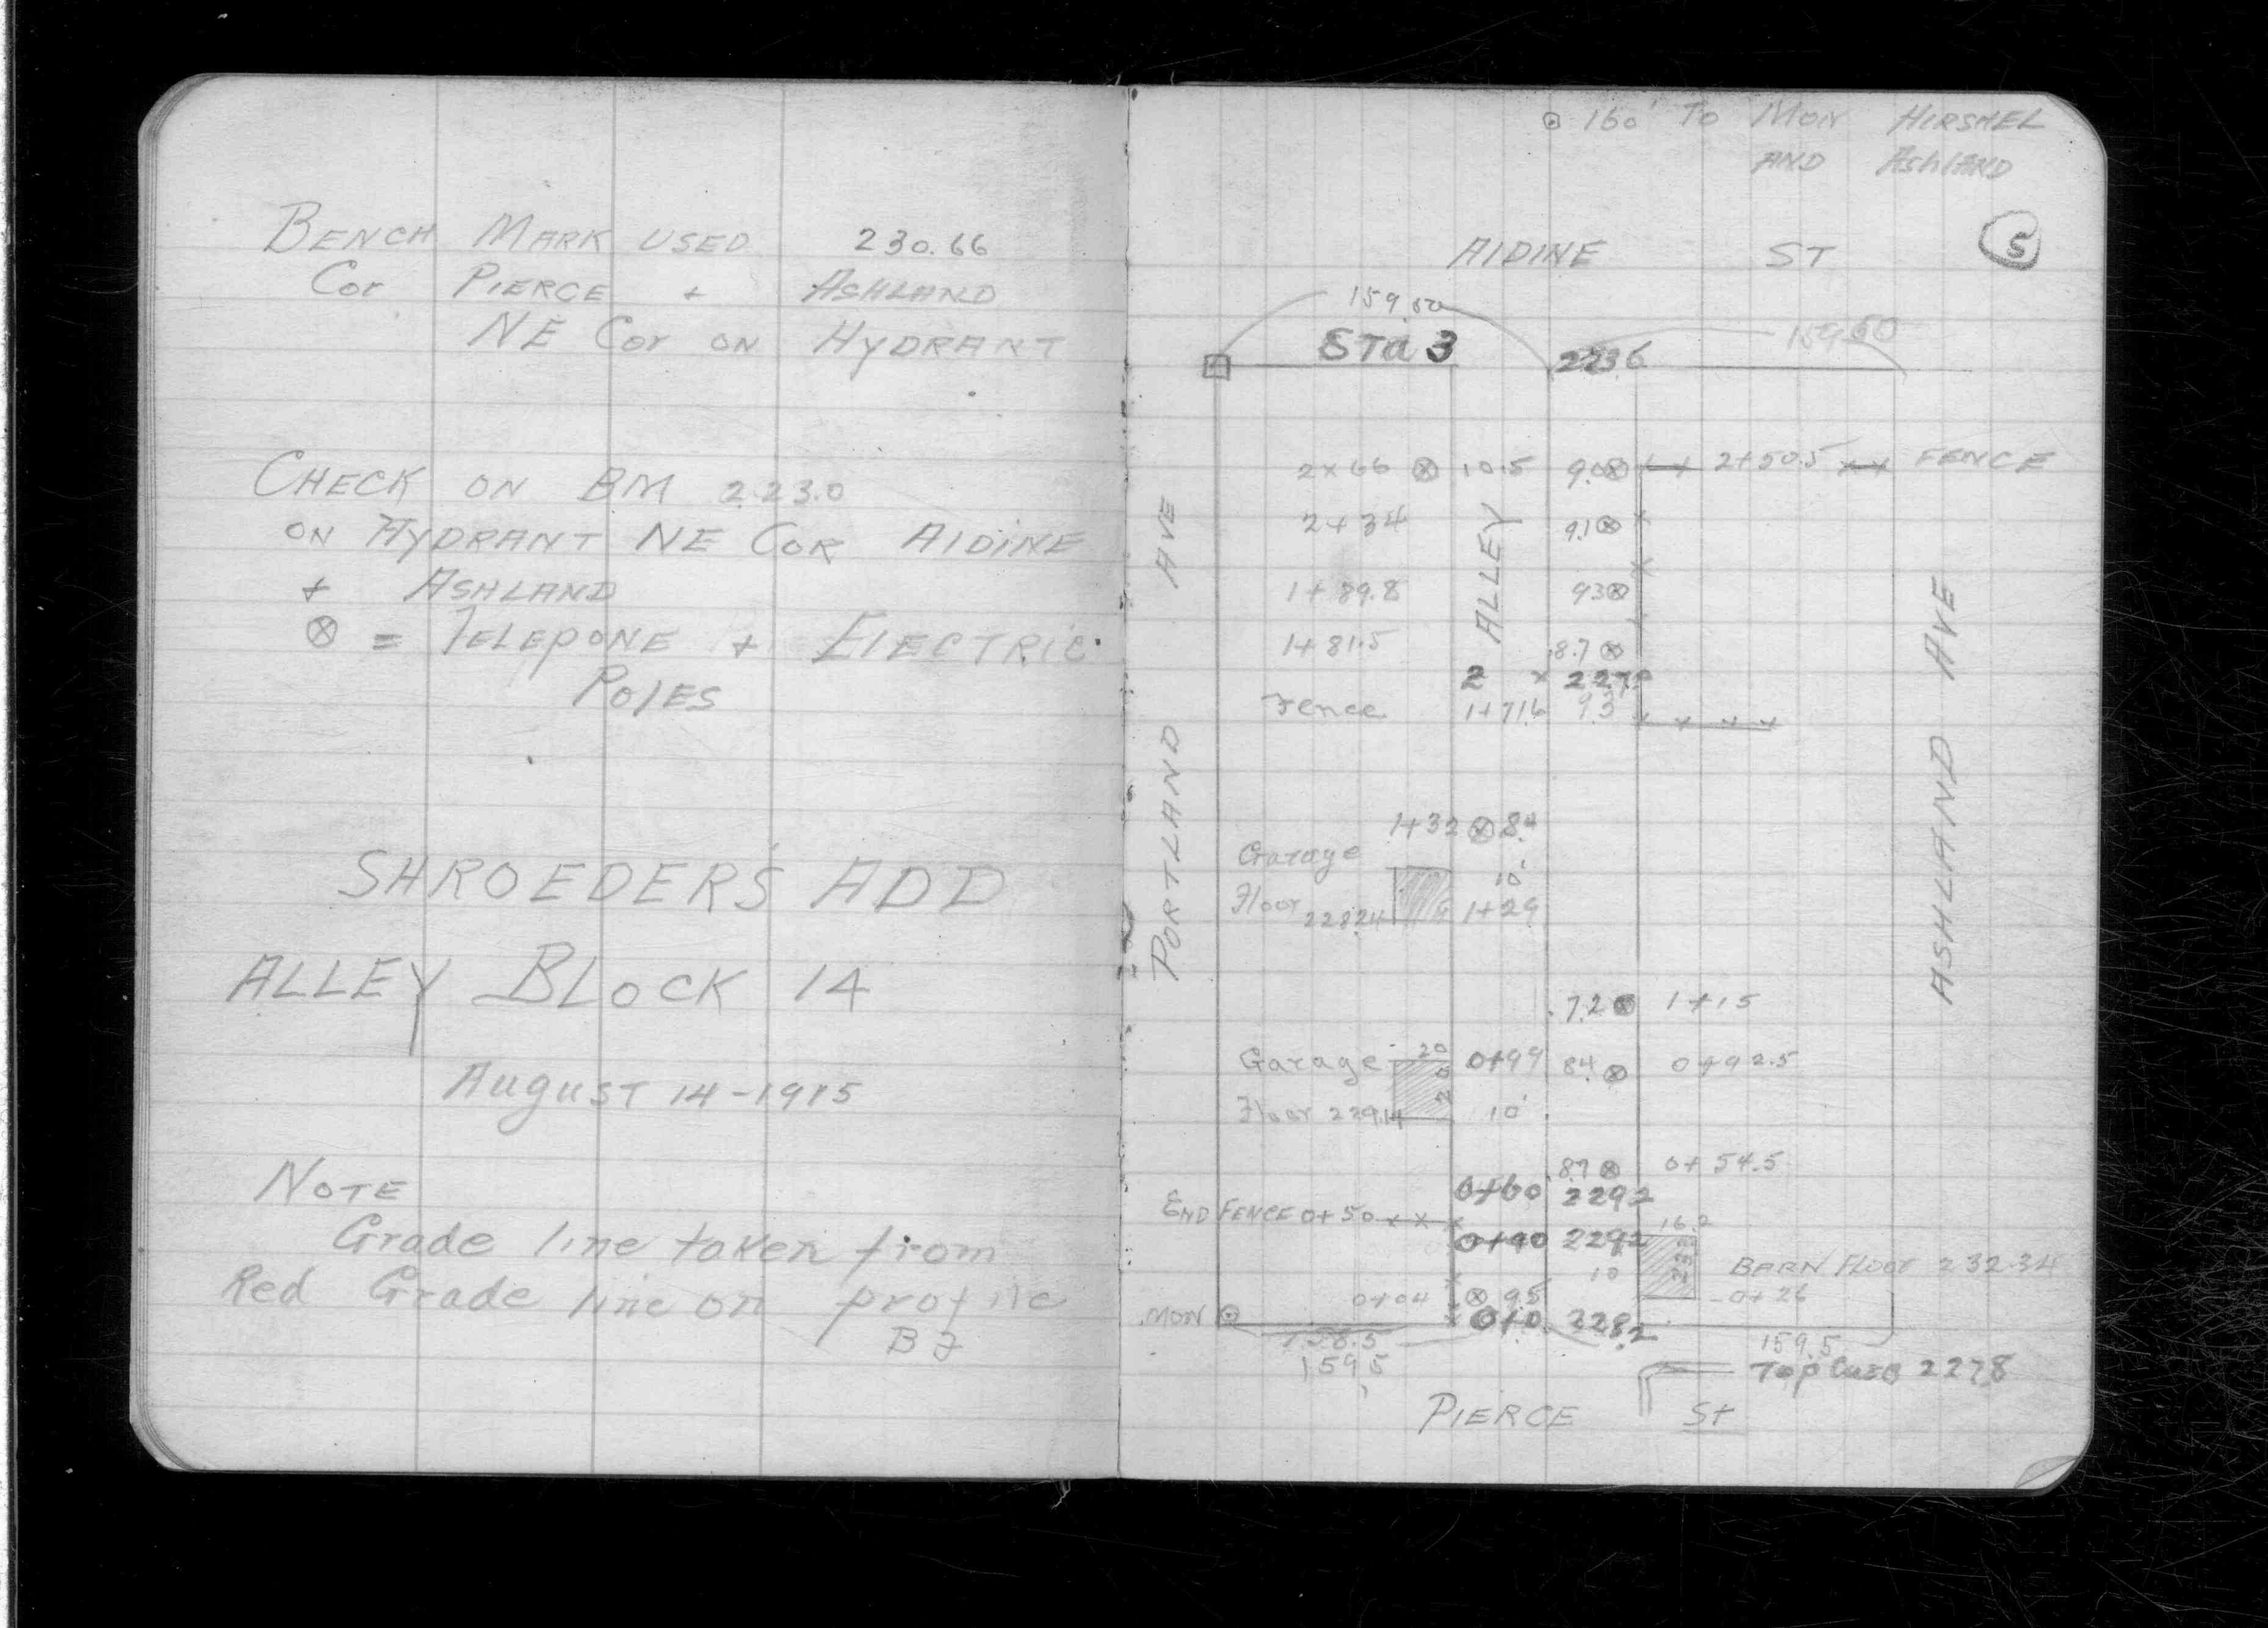 BENCH MARK USED 230.66
Cor PIERCE + ASHLAND
NE Cor ON HYDRANT
CHECK ON BM 223.0
ON HYDRANT NE COR AIDINE
+ ASHLAND
⊗ = TELEPONE + ELECTRIC
POLES
SHROEDER'S ADD
ALLEY BLOCK 14
August 14-1915
NOTE
Grade line taken from
Red Grade line on profile
⊙ 160' TO MON HIRSHEL
AND AshlAND
5
AIDINE ST
159.50
159.50
STa 3
2236
2x66 ⊗ 10.5 9.0⊗ 2+50.5 FENCE
2+34 9.1⊗
1+89.8 93⊗
1+81.5 8.7⊗
2 x 227
Fence 1+71.6 9.3
ALLEY
PORTLAND AVE
ASHLAND AVE
1+32 ⊗ 8.4
Garage 10'
Floor 228.24 1+29
7.2⊗ 1+15
Garage 20 0+99 84⊗ 0+92.5
Floor 229.14 10'
87⊗ 0+54.5
0+60 2292
END FENCE 0+50 x x
0+90 2292 16.2
10 BARN FLOOR 232.34
0+04 ⊗ 95 0+26
MON ⊙ 0+0 2282
158.5 159.5
159.5
Top CURB 2278
PIERCE St